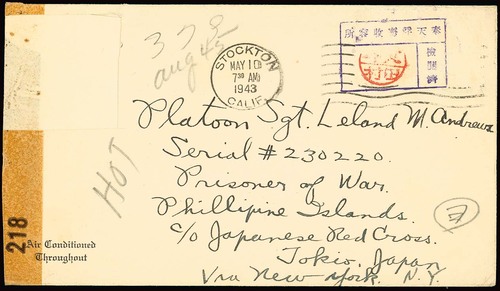 378
aug 43
STOCKTON
MAY 1
7 30 AM
1943
CALIF.
奉天俘虜收容所
檢閲濟
Platoon Sgt. Leland M. Andrews
Serial # 230220.
Prisoner of War.
Phillipine Islands.
c/o Japanese Red Cross.
Tokio, Japan
Via New York. N.Y.
HOT
218
Air Conditioned
Throughout